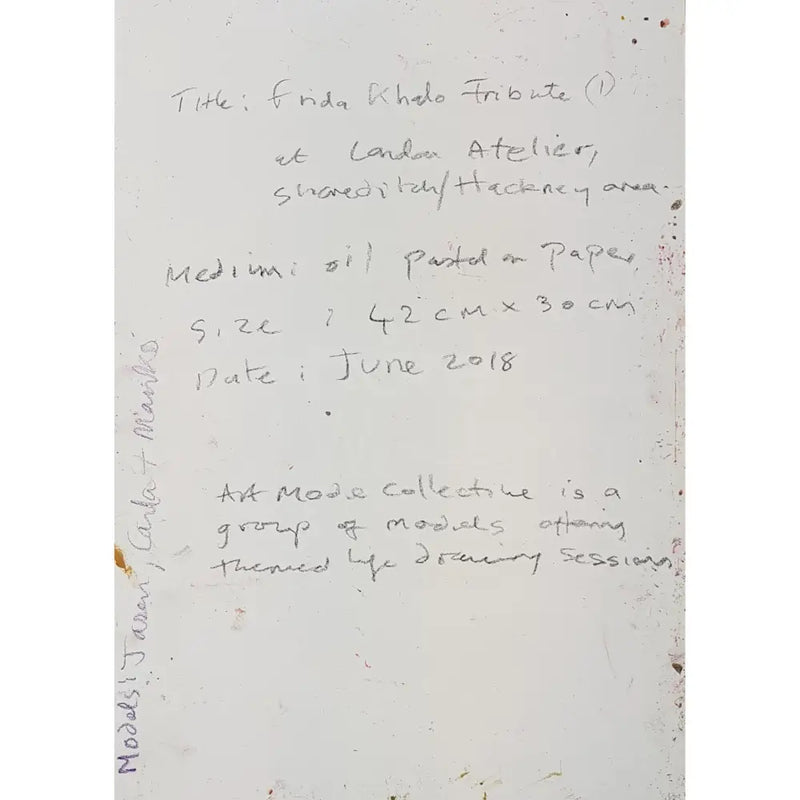 Title: Frida Khalo Tribute (1)
at London Atelier,
Shoreditch/Hackney area.
Medium: oil pastel on Paper,
Size : 42 cm x 30 cm
Date : June 2018
Art Mode Collective is a
group of models offering
themed life drawing sessions
Models: Jason, Carla + Mariko